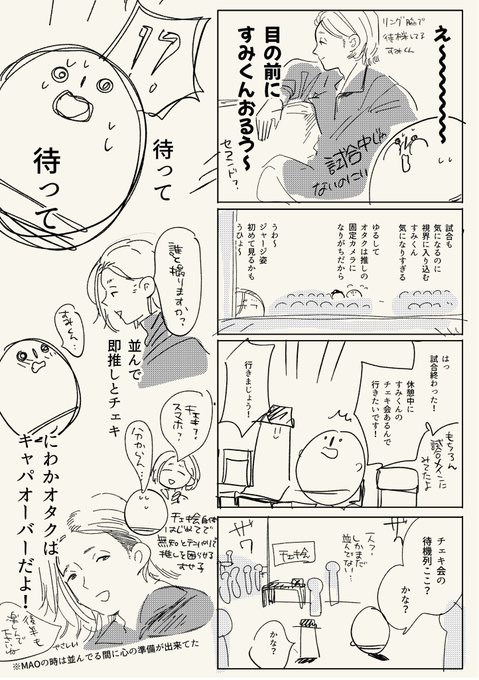 え〜〜〜〜〜
目の前に
すみくんおるう〜
リング脇で
待機してる
すみくん
試合中じゃ
ないのにい
セコンド?
試合も
気になるのに
視界に入り込む
すみくん
気になりすぎる
ゆるして
オタクは推しの
固定カメラに
なりがちだから
うわ〜
ジャージ姿
初めて見るかも
うひょ〜
はっ
試合終わった!
休憩中に
すみくんの
チェキ会あるんで
行きたいです!
行きまじょう!
もちろん
試合メインに
みてたよ
チェキ会の
待機列ここ?
かな?
一人?
しかまだ
並んでない…
チェキ会
かな?
待って
待って
誰と撮りますか?
すみくん…
並んで
即推しとチェキ
チェキ?
スマホ?
わからん…
チェキ会自体
はじめてで
無知とテンパりで
推しを困らせる
すせ子
にわかオタクは
キャパオーバーだよ!
後半も
楽しんで
下さいね
やさしい
※MAOの時は並んでる間に心の準備が出来てた